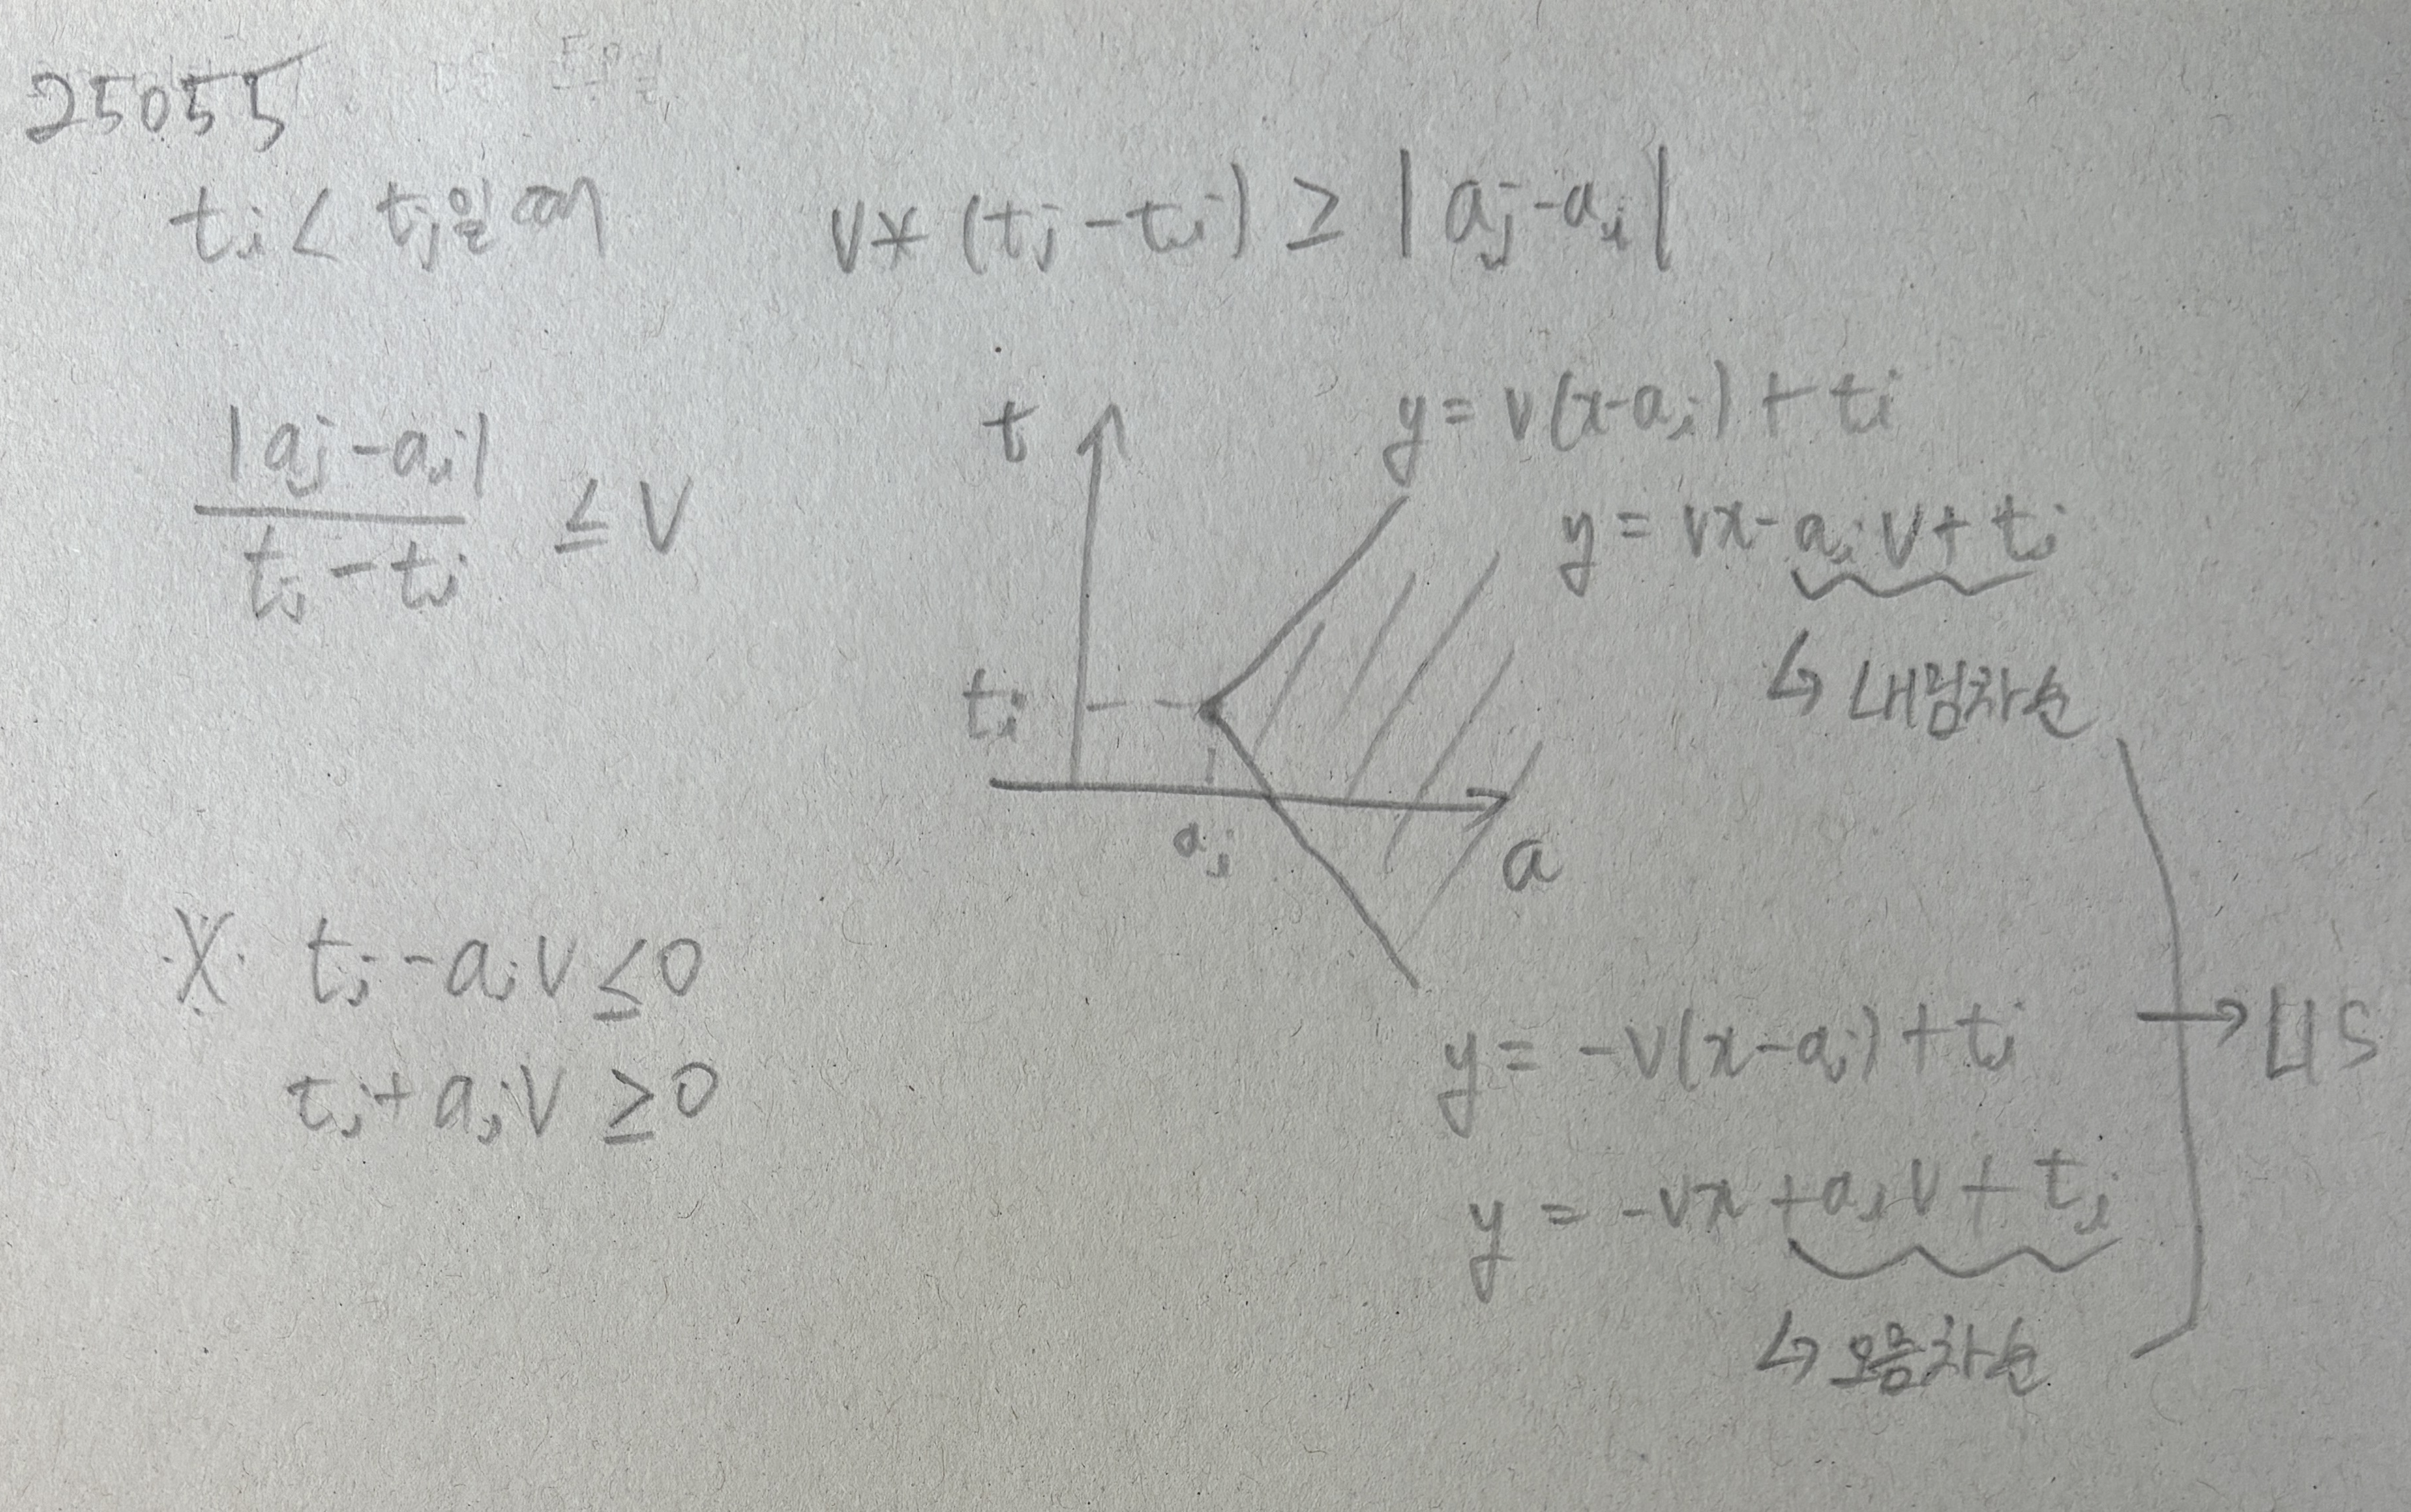 25055
t_i < t_j일 때 v * (t_j - t_i) ≥ |a_j - a_i|
|a_j - a_i| / t_j - t_i ≤ v
t
y = v(x-a_i) + t_i
y = vx - a_i v + t_i
↳ 내림차순
t_i
a_i
a
※ t_i - a_i v ≤ 0
t_i + a_i v ≥ 0
y = -v(x-a_i) + t_i
→ LIS
y = -vx + a_i v + t_i
↳ 오름차순